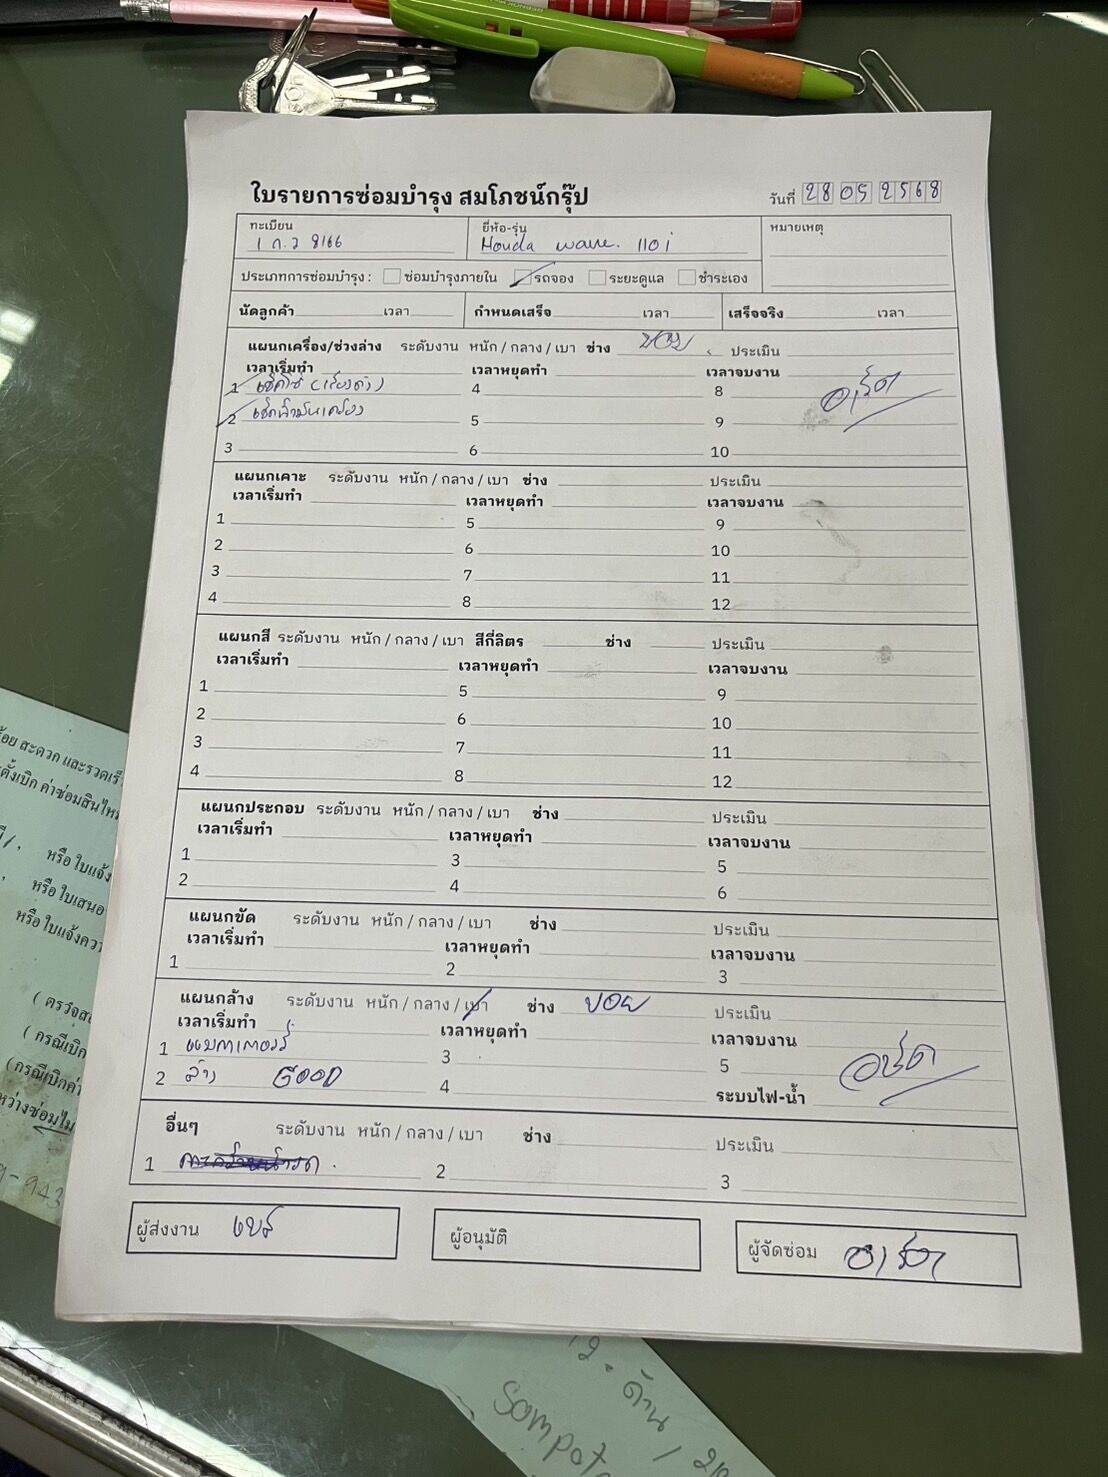 ใบรายการซ่อมบำรุง สมโภชน์กรุ๊ป
วันที่ 28 05 2568
ทะเบียน
1 ก.ว 8166
ยี่ห้อ-รุ่น
Honda wave 110i
หมายเหตุ
ประเภทการซ่อมบำรุง : ซ่อมบำรุงภายใน รถจอง ระยะดูแล ชำระเอง
นัดลูกค้า เวลา กำหนดเสร็จ เวลา เสร็จจริง เวลา
แผนกเครื่อง/ช่วงล่าง ระดับงาน หนัก / กลาง / เบา ช่าง ประเมิน
เวลาเริ่มทำ เวลาหยุดทำ เวลาจบงาน
1 เช็คโซ่ 4 8
2 เช็คน้ำมันเครื่อง 5 9
3 6 10
แผนกเคาะ ระดับงาน หนัก / กลาง / เบา ช่าง ประเมิน
เวลาเริ่มทำ เวลาหยุดทำ เวลาจบงาน
1 5 9
2 6 10
3 7 11
4 8 12
แผนกสี ระดับงาน หนัก / กลาง / เบา สีกี่ลิตร ช่าง ประเมิน
เวลาเริ่มทำ เวลาหยุดทำ เวลาจบงาน
1 5 9
2 6 10
3 7 11
4 8 12
แผนกประกอบ ระดับงาน หนัก / กลาง / เบา ช่าง ประเมิน
เวลาเริ่มทำ เวลาหยุดทำ เวลาจบงาน
1 3 5
2 4 6
แผนกขัด ระดับงาน หนัก / กลาง / เบา ช่าง ประเมิน
เวลาเริ่มทำ เวลาหยุดทำ เวลาจบงาน
1 2 3
แผนกล้าง ระดับงาน หนัก / กลาง / เบา ช่าง ปอย ประเมิน
เวลาเริ่มทำ เวลาหยุดทำ เวลาจบงาน
1 แบตเตอรี่ 3 5
2 ล้าง GOOD 4 ระบบไฟ-น้ำ
อื่นๆ ระดับงาน หนัก / กลาง / เบา ช่าง ประเมิน
1 2 3
ผู้ส่งงาน
ผู้อนุมัติ
ผู้จัดซ่อม
สะดวก และรวดเร็ว
ค่าซ่อมสินไหม
หรือ ใบแจ้ง
หรือ ใบเสนอ
หรือ ใบแจ้งความ
(กรณีเบิก
(กรณีเบิกค่า
943
2. ด้าน /